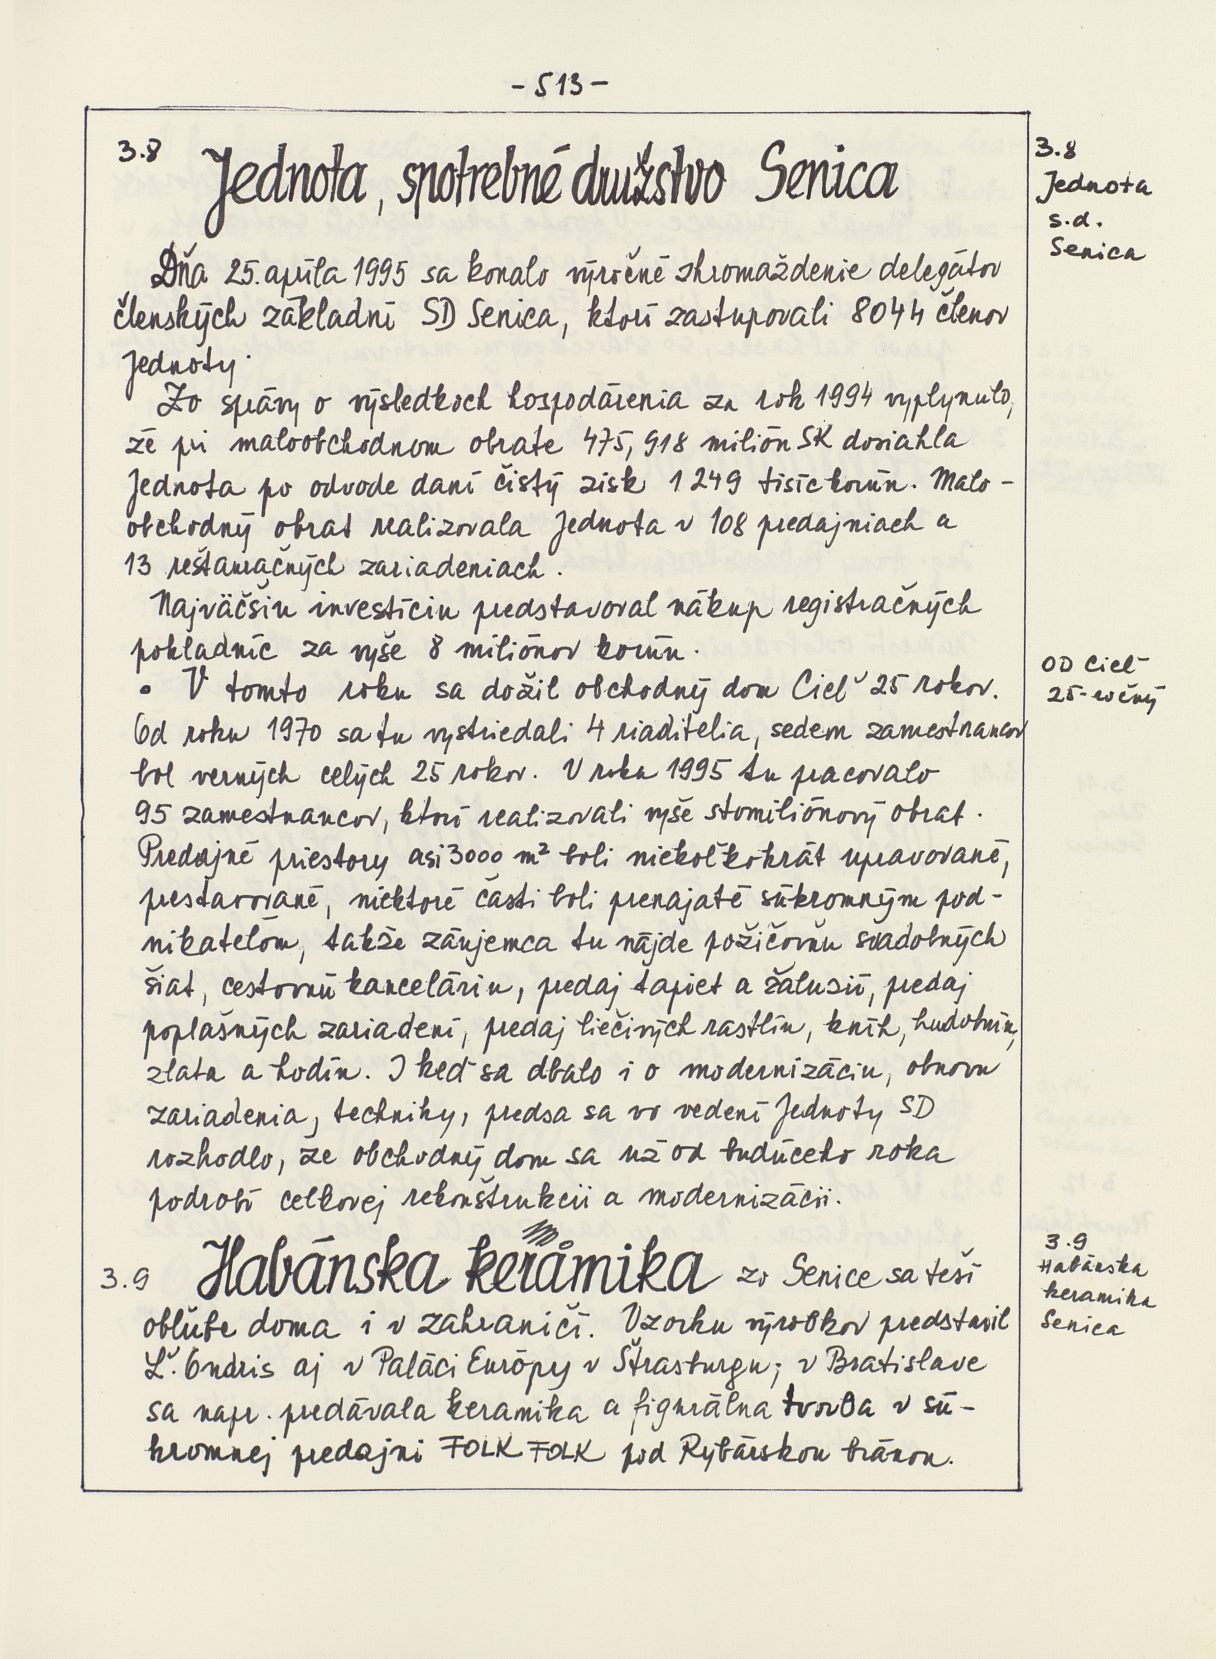 - 513 -
3.8 Jednota, spotrebné družstvo Senica
3.8
Jednota
s.d.
Senica
Dňa 25. apríla 1995 sa konalo výročné zhromaždenie delegátov
členských základní SD Senica, ktorí zastupovali 8044 členov
Jednoty.
Zo správy o výsledkoch hospodárenia za rok 1994 vyplynulo,
že pri maloobchodnom obrate 475,918 milión SK dosiahla
Jednota po odvode daní čistý zisk 1 249 tisíc korún. Malo-
obchodný obrat realizovala Jednota v 108 predajniach a
13 reštauračných zariadeniach.
Najväčšiu investíciu predstavoval nákup registračných
pokladníc za vyše 8 miliónov korún.
• V tomto roku sa dožil obchodný dom Cieľ 25 rokov.
OD Cieľ
25-ročný
Od roku 1970 sa tu vystriedali 4 riaditelia, sedem zamestnancov
bol verných celých 25 rokov. V roku 1995 tu pracovalo
95 zamestnancov, ktorí realizovali vyše stomiliónový obrat.
Predajné priestory asi 3000 m² boli niekoľkokrát upravované,
prestavované, niektoré časti boli prenajaté súkromným pod-
nikateľom, takže záujemca tu nájde požičovňu svadobných
šiat, cestovnú kanceláriu, predaj tapiet a žalusií, predaj
poplašných zariadení, predaj liečivých rastlín, kníh, hudobnín,
zlata a hodín. I keď sa dbalo i o modernizáciu, obnovu
zariadenia, techniky, predsa sa vo vedení Jednoty SD
rozhodlo, že obchodný dom sa už od budúceho roka
podrobí celkovej rekonštrukcii a modernizácii.
3.9 Habánska keramika zo Senice sa teší
3.9
Habánska
keramika
Senica
obľube doma i v zahraničí. Vzorku výrobkov predstavil
Ľ. Ondris aj v Paláci Európy v Štrasburgu; v Bratislave
sa napr. predávala keramika a figurálna tvorba v sú-
kromnej predajni FOLK FOLK pod Rybárskou bránou.